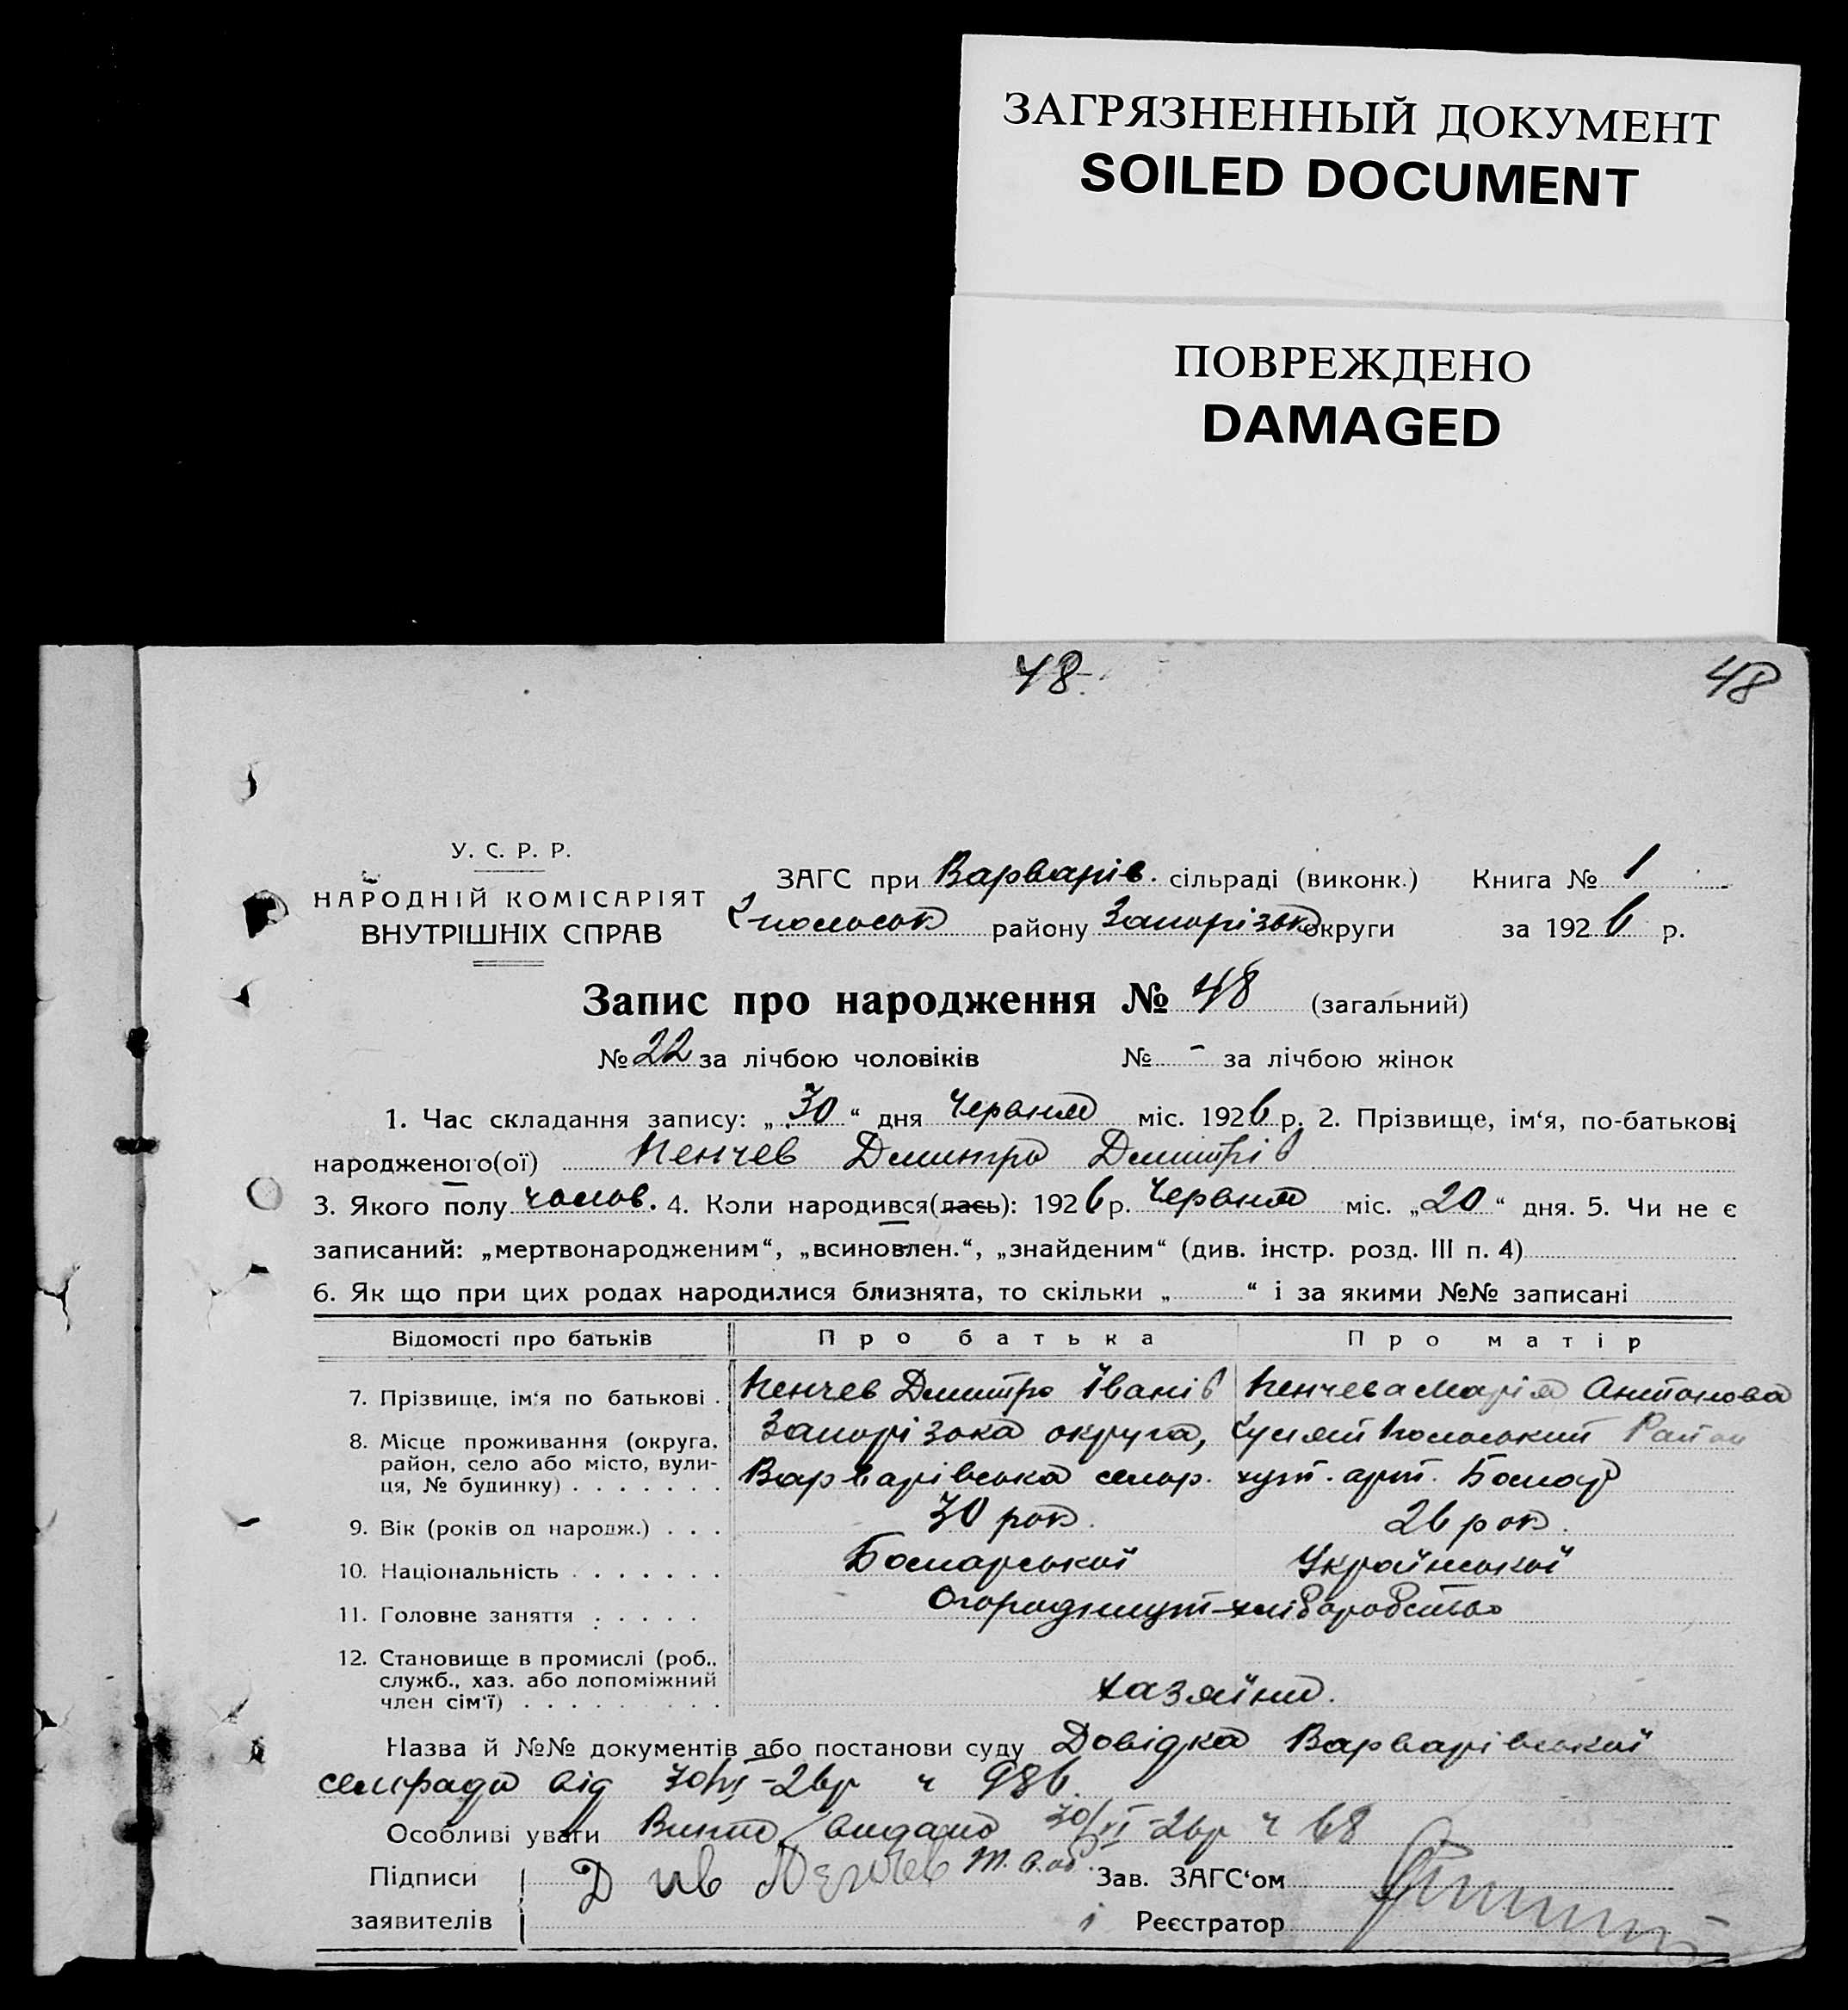 ЗАГРЯЗНЕННЫЙ ДОКУМЕНТ
SOILED DOCUMENT
ПОВРЕЖДЕНО
DAMAGED
48
48
У. С. Р. Р.
НАРОДНІЙ КОМІСАРІЯТ
ВНУТРІШНІХ СПРАВ
ЗАГС при Варварів. сільраді (виконк.) Книга № 1
району Запорізьк округи за 1926 р.
Запис про народження № 48 (загальний)
№ 22 за лічбою чоловіків № - за лічбою жінок
1. Час складання запису: „30“ дня Червня міс. 1926 р. 2. Прізвище, ім‘я, по-батькові
народженого(ої) Пенчев Дмитро Дмитрів
3. Якого полу чолов. 4. Коли народився(лась): 1926 р. Червня міс. „20“ дня. 5. Чи не є
записаний: „мертвонародженим“, „всиновлен.“, „знайденим“ (див. інстр. розд. III п. 4)
6. Як що при цих родах народилися близнята, то скільки „ “ і за якими №№ записані
Відомості про батьків Про батька Про матір
7. Прізвище, ім‘я по батькові . Пенчев Дмитро Іванів Пенчева Марія Антонова
8. Місце проживання (округа, район, село або місто, вулиця, № будинку) Запорізька округа, Район
Варварівська сельр. хут. арт.
9. Вік (років од народж.) . . . 30 рок. 26 рок.
10. Національність Болгарської Української
11. Головне заняття хліборобство
12. Становище в промислі (роб., служб., хаз. або допоміжний член сім‘ї) хазяїни.
Назва й №№ документів або постанови суду Довідка Варварівської
сельради від 30/VI-26р ч 986.
Особливі уваги видано 30/VI-26р ч 68
Підписи заявителів Д Ів Пенчев
Зав. ЗАГС‘ом
і Реєстратор